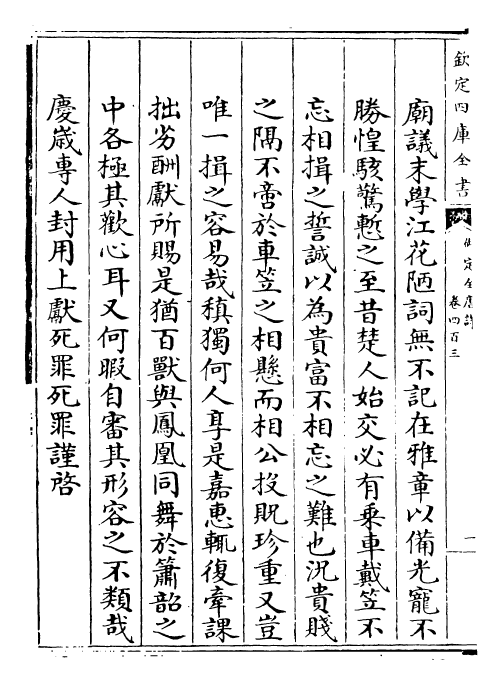 欽定四庫全書
御定全唐詩
卷四百三
廟議末學江花陋詞無不記在雅章以備光寵不
勝惶駭驚慙之至昔楚人始交必有乗車戴笠不
忘相揖之誓誠以為貴富不相忘之難也況貴賤
之隔不啻於車笠之相懸而相公投貺珍重又豈
唯一揖之容易哉稹獨何人享是嘉惠輒復牽課
拙劣酬獻所賜是猶百獸與鳳凰同舞於簫韶之
中各極其歡心耳又何暇自審其形容之不類哉
慶歲專人封用上獻死罪死罪謹啓